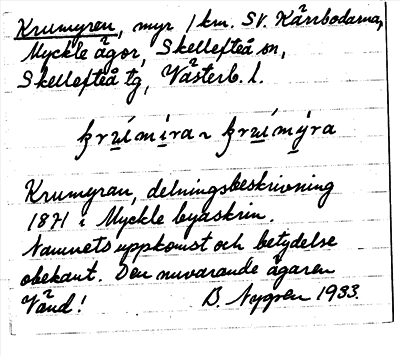 Krumyren, myr 1 km. SV. Kärrbodarna,
Myckle ägor, Skellefteå sn,
Skellefteå tg, Västerb. l.
Krumyran, delningsbeskrivning
1871 i Myckle byaskrin.
Namnets uppkomst och betydelse
obekant. Den nuvarande ägaren
Vänd! B. Nygren 1933.